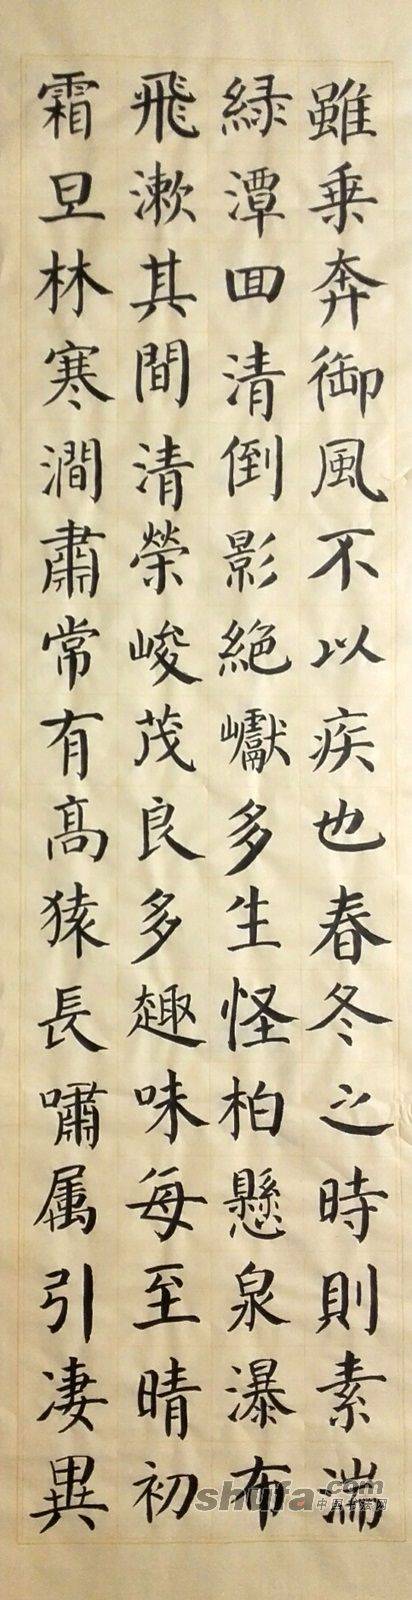 雖乗奔御風不以疾也春冬之時則素湍
緑潭回清倒影絶巘多生怪柏懸泉瀑布
飛漱其間清榮峻茂良多趣味每至晴初
霜旦林寒澗肅常有高猿長嘯属引凄異
shufa.com
中国书法网